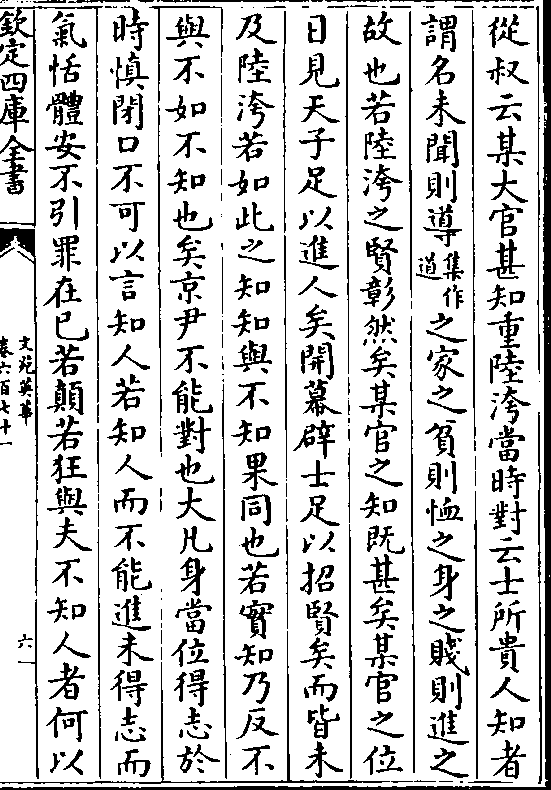 從叔云某大官甚知重陸洿當時對云士所貴人知者
謂名未聞則導集作道之家之貧則恤之身之賤則進之
故也若陸洿之賢彰然矣某官之知既甚矣某官之位
日見天子足以進人矣開幕辟士足以招賢矣而皆未
及陸洿若如此之知知與不知果同也若實知乃反不
與不如不知也矣京尹不能對也大凡身當位得志於
時慎閉口不可以言知人若知人而不能進未得志而
氣恬體安不引罪在已若顛若狂與夫不知人者何以
欽定四庫全書
文苑英華
卷六百七十一
六